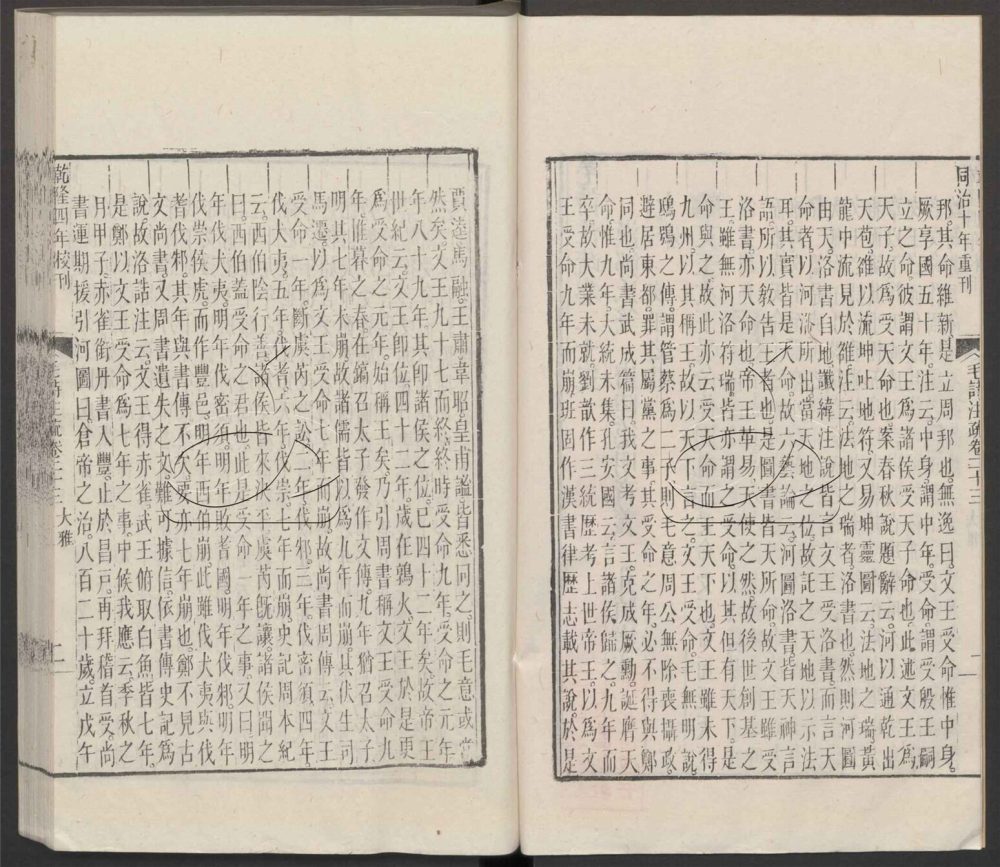 同治十年重刊
毛詩注疏卷二十三 大雅
一
那其命維新是立周邦也。無逸曰文王受命惟中身。
厥享國五十年。注云。中身謂中年。受命謂受殷王嗣
立之命。彼謂文王爲諸侯受天子命也。此述文王爲
天子。故爲受天命也。案春秋說題辭云。河以通乾出
天苞。雒以流坤吐地符。又易坤靈圖云。法地之瑞。黃
龍中流見於雒。注云。法地之瑞者。洛書也。然則河圖
由天。洛書自地。讖緯注說皆言文王受洛書而言天
命者。以河洛所出當天地之位。故託之天地以示法
耳。其實皆是天命。故六藝論云。河圖洛書皆天神言
語所以教告王者也。是圖書皆天所命。故文王雖受
洛書亦天命也。帝王革易天使之然。故後世創基之
王雖無河洛符瑞。皆亦謂之受命。以其但有天下。是
命與之故此亦云受天命而王天下也。文王雖未得
九州。以其稱王。故以天下言之。文王受命。毛無明說。
鴟鴞之傳謂管蔡爲二子。則毛意周公無除喪攝政。
避居東都。罪其屬黨之事。其受命之年。必不得與鄭
同也。尚書武成篇曰。我文考文王。克成厥勳。誕膺天
命。惟九年大統未集。孔安國云。言諸侯歸之。九年而
卒。故大業未就。劉歆作三統歷。考上世帝王。以爲文
王受命九年而崩。班固作漢書律歷志。載其說。於是
賈逵馬融。王肅韋昭皇甫謐。皆悉同之。則毛意或當
然矣。文王九十七而終。終時受命九年。受命之元年
年八十九年。其卽諸侯之位。已四十二年矣。故帝王
世紀云。文王卽位四十二年。歲在鶉火。文王於是更
爲受命之元年。始稱王矣。乃引周書稱文王受命九
年。惟暮春之在鎬。召太子發作文傳。九年猶召太子。
明其七年未崩。故諸儒皆以爲九年而崩。其伏生司
馬遷。以爲文王受命七年而崩。故尚書周傳云。文王
受命一年。斷虞芮之訟。二年伐邘。三年伐密須。四年
伐犬夷。五年伐耆。六年伐崇。七年而崩。史記周本紀
云。西伯陰行善。諸侯皆來決平。虞芮旣讓。諸侯聞之
曰。西伯蓋受命之君也。此是受命一年之事。又曰。明
年伐犬夷。明年伐密須。明年敗耆國。明年伐邘。明年
伐崇侯虎。而作豐邑。明年西伯崩。此雖伐犬夷與伐
耆伐邘。其年與書傳不次。要亦七年崩也。鄭不見古
文尚書。又周書遺失之文。難可據信。依書傳史記爲
說。故洛誥注云。文王得赤雀。武王俯取白魚。皆七年。
是鄭以文王受命爲七年之事。中候我應云。季秋之
月甲子。赤雀銜丹書入豐。止於昌戶。再拜稽首受。尚
書運期援引河圖曰。倉帝之治。八百二十歲。立戊午
乾隆四年校刊
毛詩注疏卷二十三 大雅
二